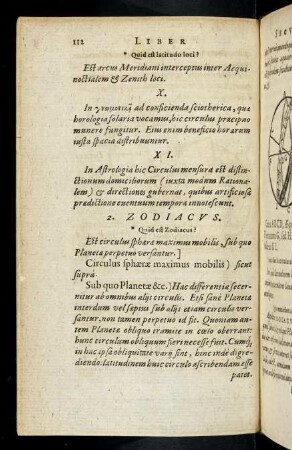 112 LIBER
* Quid est latitudo loci?
Est arcus Meridiani interceptus inter Aequi-
noctialem & Zenith loci.
X.
In γνωμονικῇ ad conficienda sciotherica, quae
horologia solaria vocamus, hic circulus praecipuo
munere fungitur. Eius enim beneficio horarum
iusta spacia distribuuntur.
XI.
In Astrologia hic Circulus mensura est distin-
ctionum domicilorum (iuxta modum Rationa-
lem) & directiones gubernat, quibus artificiosa
praedictione euentuum tempora innotescunt.
2. ZODIACVS.
* Quid est Zodiacus?
Est circulus sphaerae maximus mobilis, sub quo
Planetae perpetuo versantur.]
Circulus sphaerae maximus mobilis) sicut
supra
Sub quo Planetae &c.) Hac differentia secer-
nitur ab omnibus alijs circulis. Etsi sane Planetae
interdum vel saepius sub alijs etiam circulis ver-
santur, non tamen perpetuo id fit. Quoniam au-
tem Planetae obliquo tramite in coelo oberrant:
hunc circulum obliquum fieri necesse fuit. Cumq́,
in hac ipsa obliquitate varij sint, hinc inde digre-
diendo: latitudinem huic circulo ascribendam esse
patet.